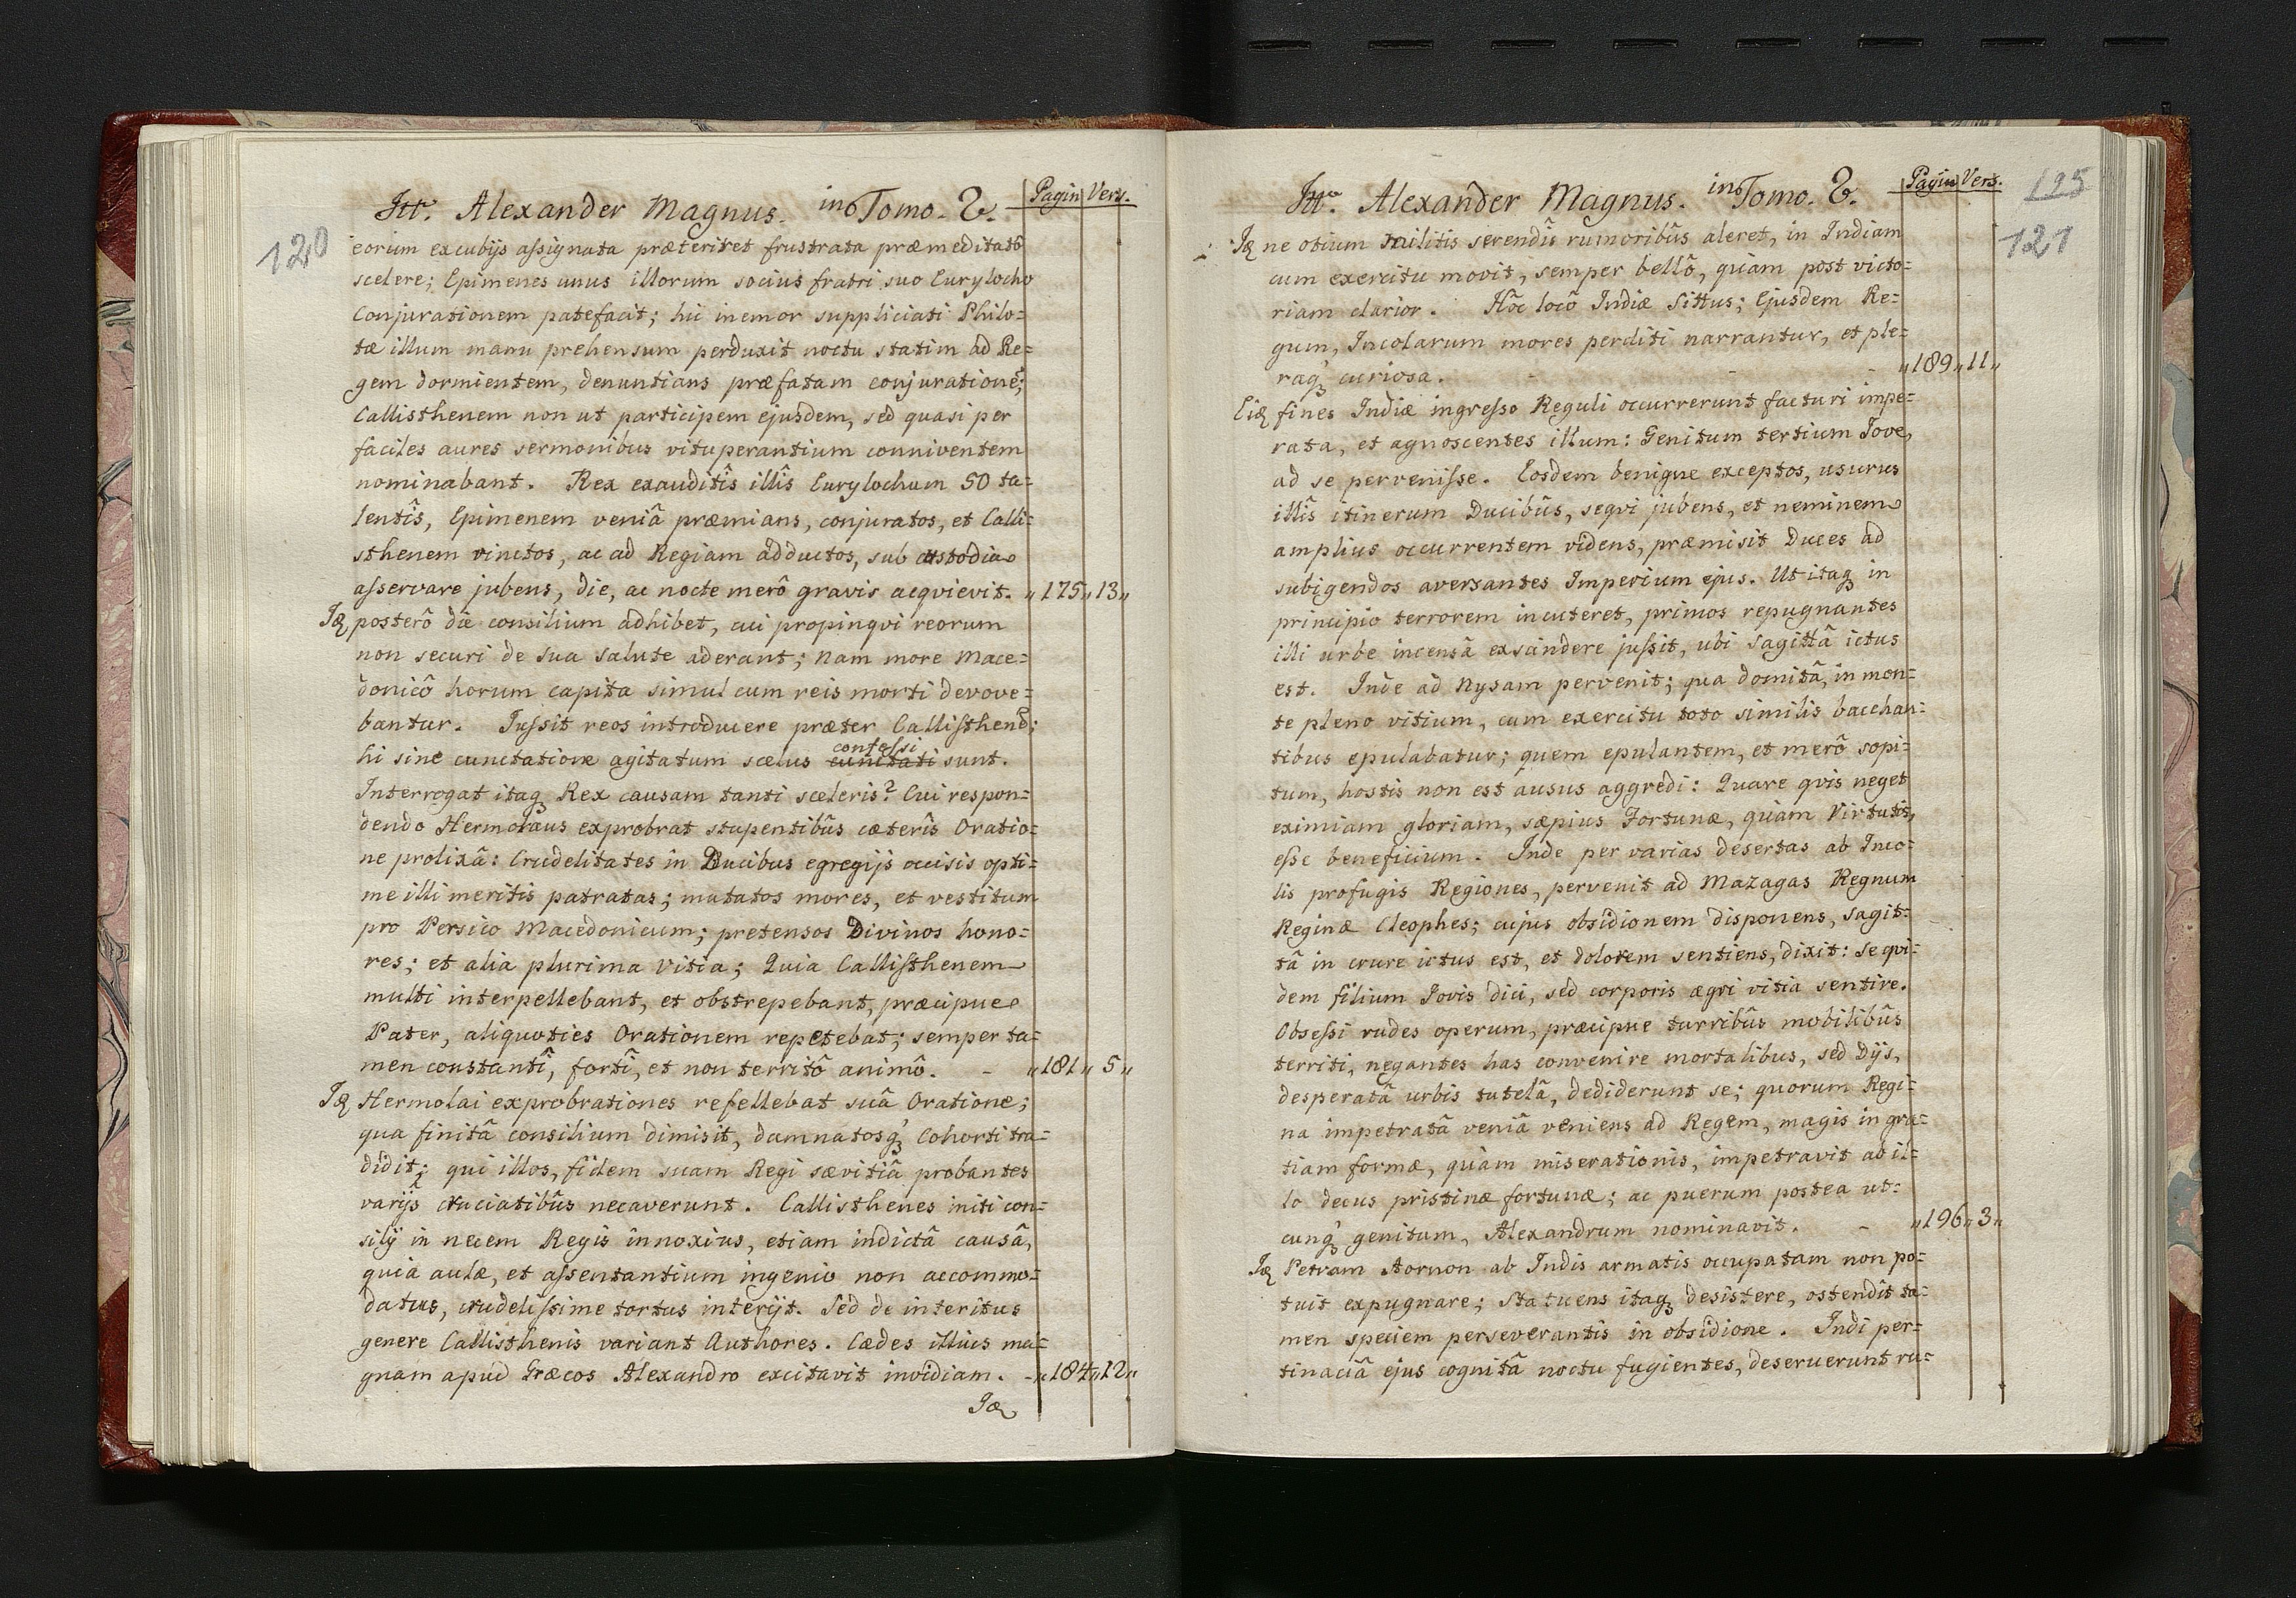 Itt. Alexander Magnus. in Tomo. 2. Pagin Vers.
120
eorum excubijs assignata præteriret frustrata præmeditatô
scelere; Epimenes unus illorum socius fratri suo Eurylocho
Conjurationem patefacit; hic inemor suppliciati Philo=
tæ illum manu prehensum perduxit noctu statim ad Re=
gem dormientem, denuntians præfatam conjurationē;
Callisthenem non ut participem ejusdem, sed quasi per
faciles aures sermonibus vituperantium conniventem
nominabant. Rex exauditîs illîs Eurylochum 50 ta=
lentîs, Epimenem veniâ præmians, conjuratos, et Calli=
sthenem vinctos, ac ad Regiam adductos, sub custodia
asservare jubens, die, ac nocte merô gravis acqvievit. „175„13„
Iæ posterô die consilium adhibet, cui propinqvi reorum
non securi de sua salute aderant; Nam more Mace=
donicô horum capita simul cum reis morti devove=
bantur. Jussit reos introducere præter Callisthenē;
confessi
hi sine cunctatione agitatum scelus cunctati sunt.
Interrogat itaq Rex causam tanti sceleris? Cui respon=
dendo Hermolaus exprobrat stupentibûs cæterîs Oratio=
ne prolixâ: Crudelitates in Ducibus egregijs occisis opti=
me illi meritis patratas; mutatos mores, et vestitum
pro Persico Macedonicum; pretensos Divinos hono=
res; et alia plurima Vitia; Quia Callisthenem
multi interpellebant, et obstrepebant, præcipue
Pater, aliquoties Orationem repetebat; semper ta=
men constantî, fortî, et non territô animô. - „181„ 5„
Iæ Hermolai exprobrationes refellebat suâ Oratione;
qua finitâ consilium dimisit, damnatosq Cohorti tra=
didit; qui illos, fidem suam Regi sævitiâ probantes
varijs cruciatibûs necaverunt. Callisthenes initi con=
silij in necem Regis innoxius, etiam indictâ causâ,
quia aulæ, et assentantium ingenio non accommo=
datus, crudelissime tortus interijt. Sed de interitus
genere Callisthenis variant Authores. Cædes illius ma=
gnam apud Græcos Alexandro excitavit invidiam. - „184„12„
Iæ
Itt. Alexander Magnus. in Tomo. 2. Pagin Vers.
195
121
Iæ ne otium militis serendîs rumoribûs aleret, in Indiam
cum exercitu movit, semper bellô, quam post victo=
riam clarior. Hôc locô Indiæ Sittus; Ejusdem Re=
gum, Incolarum mores perditi narrantur, et ple=
raq curiosa. - - - „189„11„
Eiæ fines Indiæ ingresso Reguli occurrerunt facturi impe=
rata, et agnoscentes illum: Genitum tertium Jove,
ad se pervenisse. Eosdem benigne exceptos, usurus
illîs itinerum Ducibûs, seqvi jubens, et neminem
amplius occurrentem videns, præmisit Duces ad
subigendos aversantes Imperium ejus. Ut itaq in
principio terrorem incuteret, primos repugnantes
illi urbe incensâ exscindere jussit, ubi sagittâ ictus
est. Inde ad Nysam pervenit; qua domitâ, in mon=
te pleno vitium, cum exercitu toto similis bacchan=
tibus epulabatur; quem epulantem, et merô sopi=
tum, hostis non est ausus aggredi: Quare qvis neget
eximiam gloriam, sæpius Fortunæ, quàm Virtutis,
esse beneficium. Inde per varias desertas ab Inco=
lis profugis Regiones, pervenit ad Mazagas Regnum
Reginæ Cleophes; cujus obsidionem disponens, sagit=
tâ in crure ictus est, et dolorem sentiens, dixit: Se qvi=
dem filium Jovis dici, sed corporis ægri vitia sentire.
Obsessi rudes operum, præcipue turribûs mobilibûs
territi, negantes has convenire mortalibus, sed Dijs,
desperatâ urbis tutelâ, dediderunt se; quorum Regi=
na impetratâ veniâ veniens ad Regem, magis in gra=
tiam formæ, quàm miserationis, impetravit ab il=
lo decus pristinæ fortunæ; ac puerum postea ut=
cunq genitum, Alexandrum nominavit. - „196„3„
Iæ Petram Aornon ab Indis armatis occupatam non po=
tuit expugnare; Statuens itaq desistere, ostendit ta=
men speciem perseverantis in obsidione. Indi per=
tinaciâ ejus cognitâ noctu fugientes, deseruerunt ru=